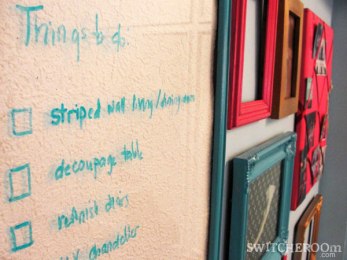 Things to do:
striped wall living/dining room
decoupage table
refinish chairs
chandelier
SWITCHEROOm.com